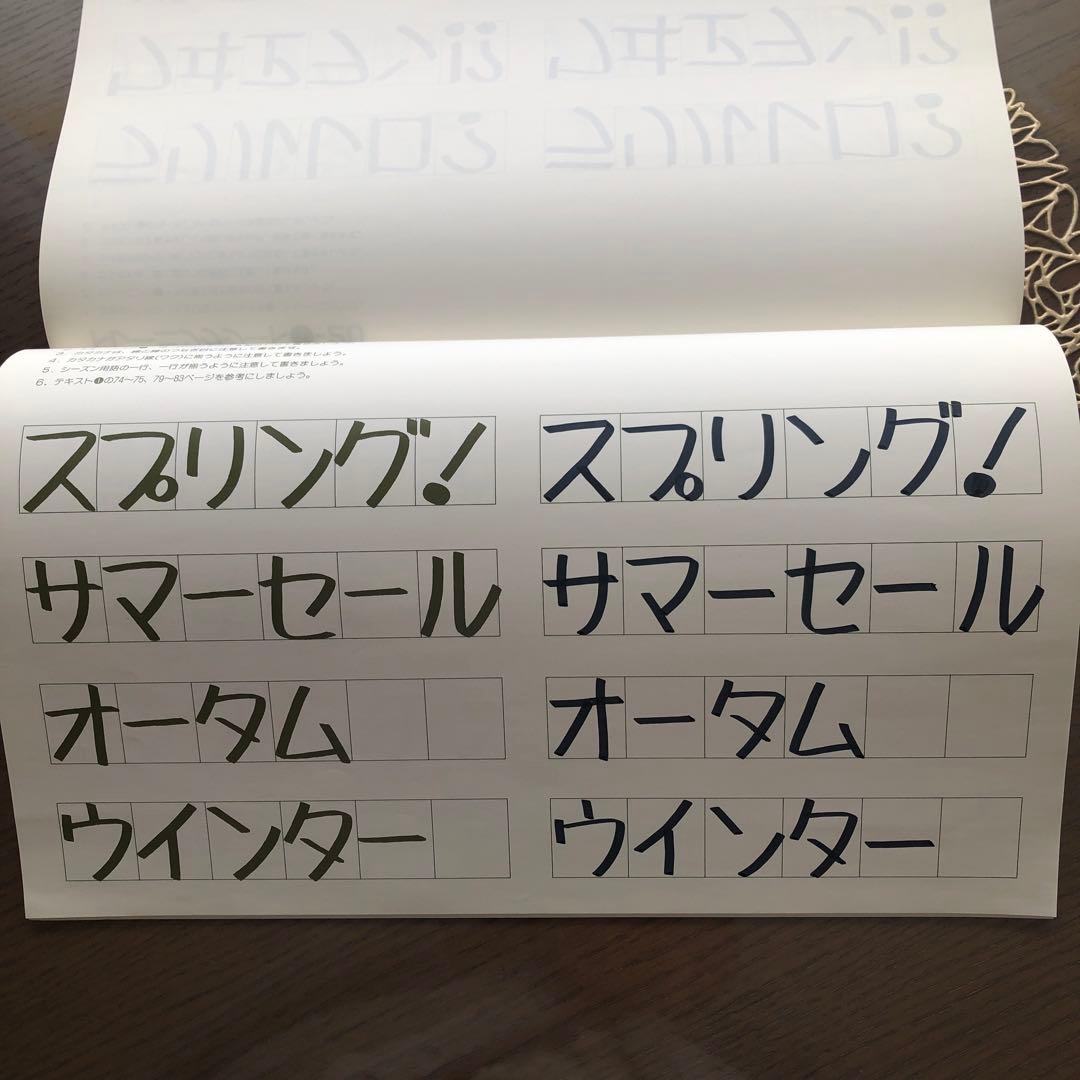 4．カタカナがアタリ線(ワク)に揃うように注意して書きましょう。
5．シーズン用語の一行、一行が揃うように注意して書きましょう。
6．テキスト❶の74〜75、79〜83ページを参考にしましょう。
スプリング! スプリング!
サマーセール サマーセール
オータム オータム
ウインター ウインター